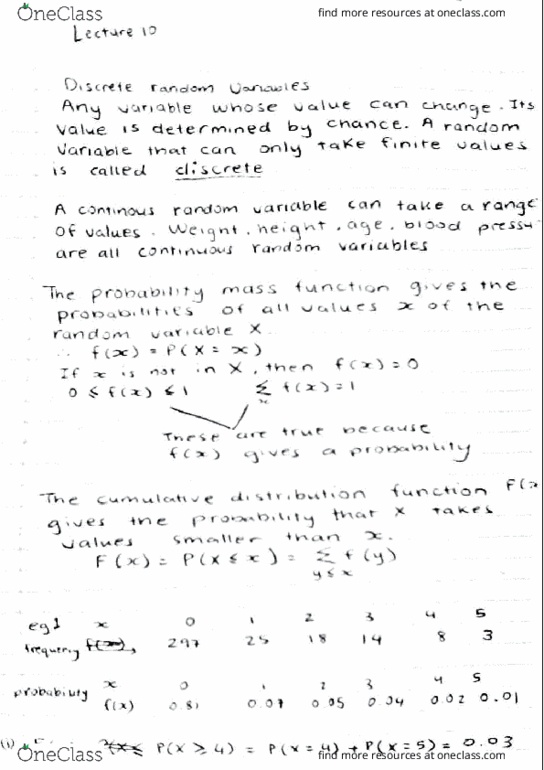 OneClass
find more resources at oneclass.com
Lecture 10
Discrete random variables
Any variable whose value can change. Its
value is determined by chance. A random
variable that can only take finite values
is called discrete
A continous random variable can take a range
of values. Weight, height, age, blood pressu
are all continuous random variables
The probability mass function gives the
probabilities of all values x of the
random variable X
∴ f(x) = P(X = x)
If x is not in X, then f(x) = 0
0 ≤ f(x) ≤ 1 Σx f(x) = 1
These are true because
f(x) gives a probability
The cumulative distribution function F(x
gives the probability that X takes
values smaller than x.
F(x) = P(X ≤ x) = Σ f(y)
y ≤ x
eg1 x 0 1 2 3 4 5
frequency f(x), 297 25 18 14 8 3
probability x 0 1 2 3 4 5
f(x) 0.81 0.07 0.05 0.04 0.02 0.01
(i) P(X ≥ 4) = P(X = 4) + P(X = 5) = 0.03
OneClass
find more resources at oneclass.com